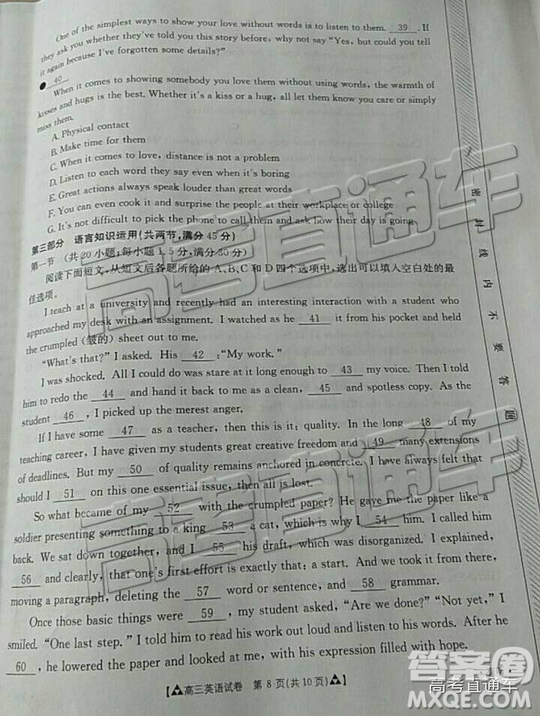 One of the simplest ways to show your love without words is to listen to them. 39 . If
they ask you whether they've told you this story before, why not say "Yes, but could you tell
it again because I've forgotten some details?"
40
When it comes to showing somebody you love them without using words, the warmth of
kisses and hugs is the best. Whether it's a kiss or a hug, all let them know you care or simply
miss them.
A. Physical contact
B. Make time for them
C. When it comes to love, distance is not a problem
D. Listen to each word they say even when it's boring
E. Great actions always speak louder than great words
F. You can even cook it and surprise the people at their workplace or college
G. It's not difficult to pick the phone to call them and ask how their day is going
第三部分 语言知识运用(共两节,满分 45 分)
第一节 (共 20 小题,每小题 1.5 分,满分 30 分)
阅读下面短文,从短文后各题所给的 A、B、C 和 D 四个选项中,选出可以填入空白处的最
佳选项。
I teach at a university and recently had an interesting interaction with a student who
approached my desk with an assignment. I watched as he 41 it from his pocket and held
the crumpled (皱的) sheet out to me.
"What's that?" I asked. His 42 : "My work."
I was shocked. All I could do was stare at it long enough to 43 my voice. Then I told
him to redo the 44 and hand it back to me as a clean, 45 and spotless copy. As the
student 46 , I picked up the merest anger.
If I have some 47 as a teacher, then this is it: quality. In the long 48 of my
teaching career, I have given my students great creative freedom and 49 many extensions
of deadlines. But my 50 of quality remains anchored in concrete. I have always felt that
should I 51 on this one essential issue, then all is lost.
So what became of my 52 with the crumpled paper? He gave me the paper like a
soldier presenting something to a king 53 a cat, which is why I 54 him. I called him
back. We sat down together, and I 55 his draft, which was disorganized. I explained,
56 and clearly, that one's first effort is exactly that: a start. And we took it from there,
moving a paragraph, deleting the 57 word or sentence, and 58 grammar.
Once those basic things were 59 , my student asked, "Are we done?" "Not yet," I
smiled. "One last step." I told him to read his work out loud and listen to his words. After he
60 , he lowered the paper and looked at me, with his expression filled with hope.
【高三英语试卷 第 8 页(共 10 页)】
密 封 线 内 不 要 答 题
高考直通车
高考直通车
高考直通车
答案圈
MXQE.COM